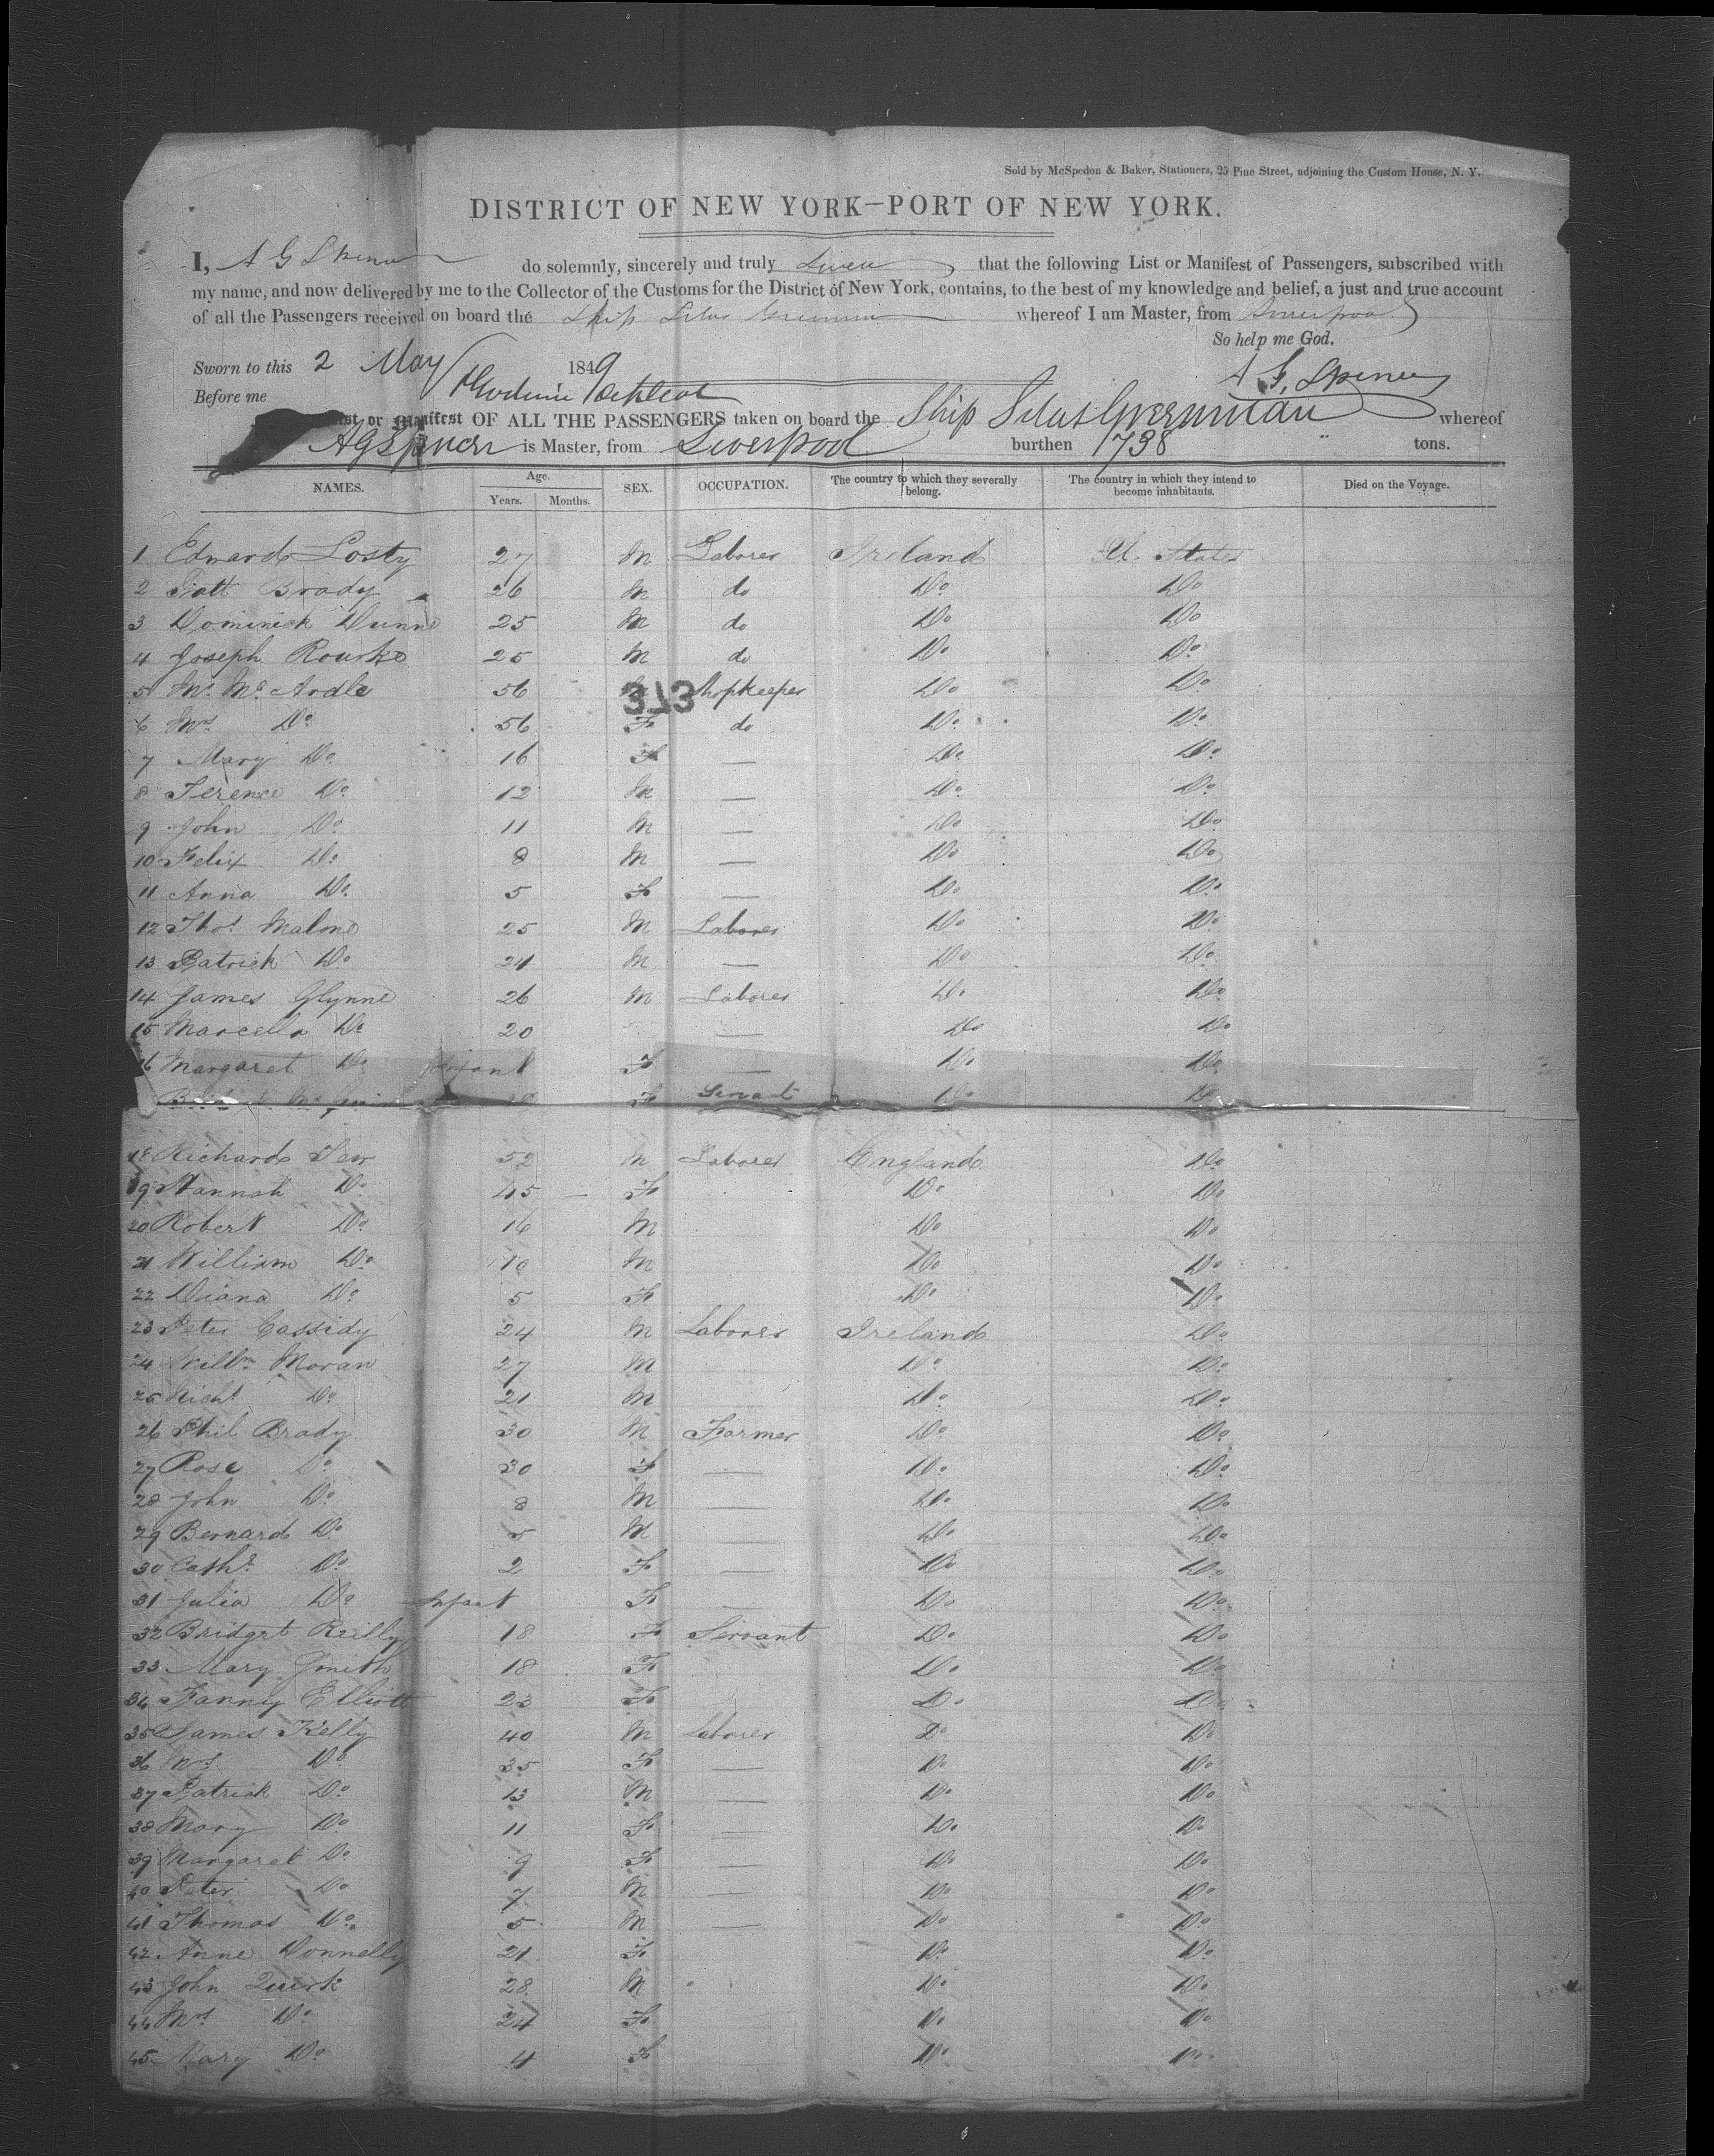 Sold by McSpedon & Baker, Stationers, 25 Pine Street, adjoining the Custom House, N. Y.
DISTRICT OF NEW YORK—PORT OF NEW YORK.
I, A G Spencer do solemnly, sincerely and truly Swear that the following List or Manifest of Passengers, subscribed with
my name, and now delivered by me to the Collector of the Customs for the District of New York, contains, to the best of my knowledge and belief, a just and true account
of all the Passengers received on board the Ship Silas Greenman whereof I am Master, from Liverpool
So help me God.
Sworn to this 2 May 1849
A G, Spencer
Before me
or Manifest OF ALL THE PASSENGERS taken on board the Ship Silas Greenman whereof
A G Spencer is Master, from Liverpool burthen 738 tons.
NAMES. Age. Years. Months. SEX. OCCUPATION. The country to which they severally belong. The country in which they intend to become inhabitants. Died on the Voyage.
1 Edward Losty 27 M Laborer Ireland U. States
2 Brady 26 M do Do Do
3 Dominick Dunne 25 M do Do Do
4 Joseph Rourke 25 M do Do Do
5 Mr. McArdle 56 Shopkeeper Do Do
373
6 Mrs Do 56 F do Do Do
7 Mary Do 16 F — Do Do
8 Terence Do 12 M — Do Do
9 John Do 11 M — Do Do
10 Felix Do 8 M — Do Do
11 Anna Do 5 F — Do Do
12 Thos Malone 25 M Laborer Do Do
13 Patrick Do 24 M — Do Do
14 James Glynne 26 M Laborer Do Do
15 Marcella Do 20 — Do Do
16 Margaret Do Infant F — Do Do
F Servant Do Do
18 Richard Tew 52 M Laborer England Do
19 Hannah Do 45 F Do Do
20 Robert Do 16 M Do Do
21 William Do 10 M Do Do
22 Diana Do 5 F Do Do
23 Peter Cassidy 24 M Laborer Ireland Do
24 Willm Moran 27 M Do Do
25 Richd Do 21 M Do Do
26 Phil Brady 30 M Farmer Do Do
27 Rose Do 30 F — Do Do
28 John Do 8 M — Do Do
29 Bernard Do 5 M — Do Do
30 Cathe Do 2 F — Do Do
31 Julia Do Infant F — Do Do
32 Bridget Reilly 18 F Servant Do Do
33 Mary Smith 18 F Do Do
34 Fanny Elliott 23 F Do Do
35 James Kelly 40 M Laborer Do Do
36 Mrs Do 35 F — Do Do
37 Patrick Do 13 M — Do Do
38 Mary Do 11 F — Do Do
39 Margaret Do 9 F — Do Do
40 Peter Do 7 M — Do Do
41 Thomas Do 5 M — Do Do
42 Anne Donnelly 21 F Do Do
43 John Quirk 28 M Do Do
44 Mrs Do 24 F Do Do
45 Mary Do 4 F Do Do